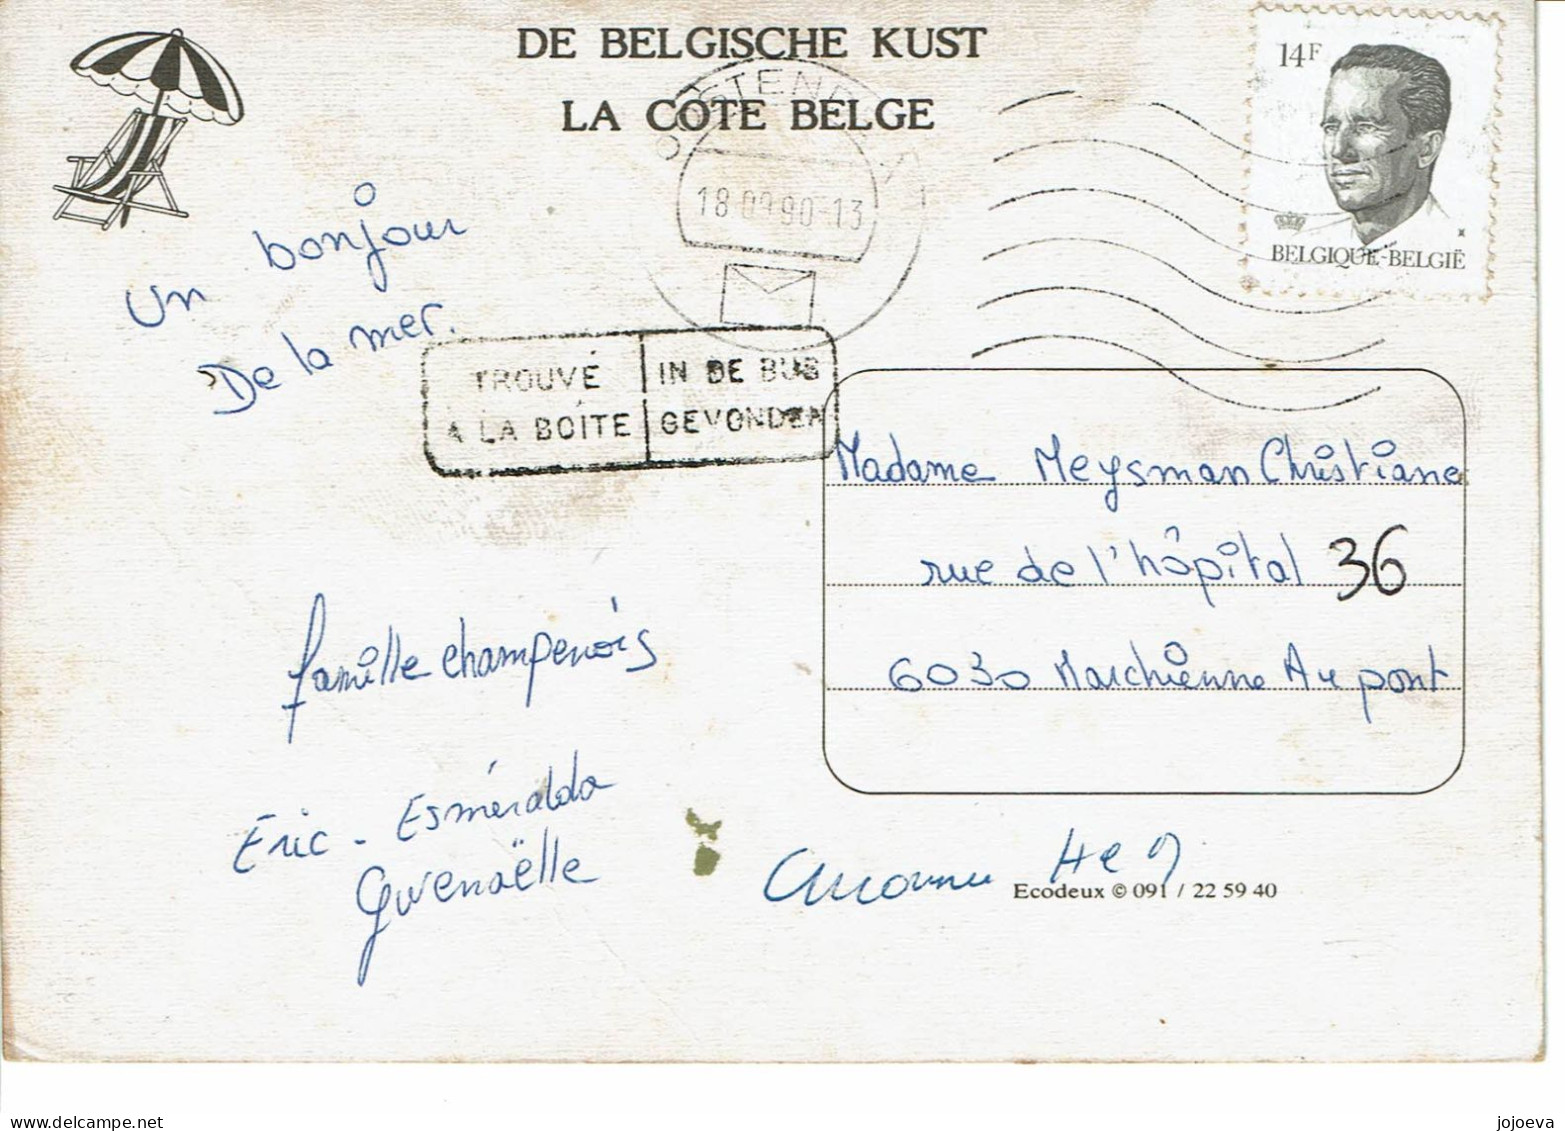 DE BELGISCHE KUST
LA COTE BELGE
OOSTENDE
18.09.90-13
14F
BELGIQUE-BELGIË
Un bonjour
De la mer.
TROUVÉ
A LA BOÎTE
IN DE BUS
GEVONDEN
Madame Meysman Christiane
rue de l'hôpital 36
6030 Marchienne Au pont
famille champenois
Eric - Esméralda
Gwenaëlle
Ecodeux © 091 / 22 59 40
jojoeva
delcampe.net